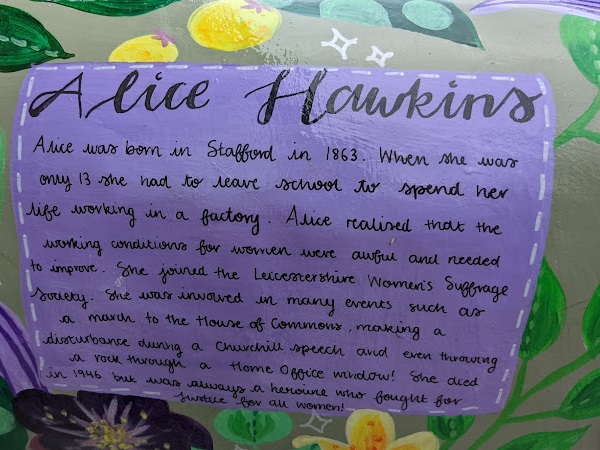 Alice Hawkins
Alice was born in Stafford in 1863. When she was
only 13 she had to leave school to spend her
life working in a factory. Alice realised that the
working conditions for women were awful and needed
to improve. She joined the Leicestershire Women's Suffrage
Society. She was involved in many events such as
a march to the House of Commons, making a
disturbance during a Churchill speech and even throwing
a rock through a Home Office window! She died
in 1946 but was always a heroine who fought for
justice for all women!